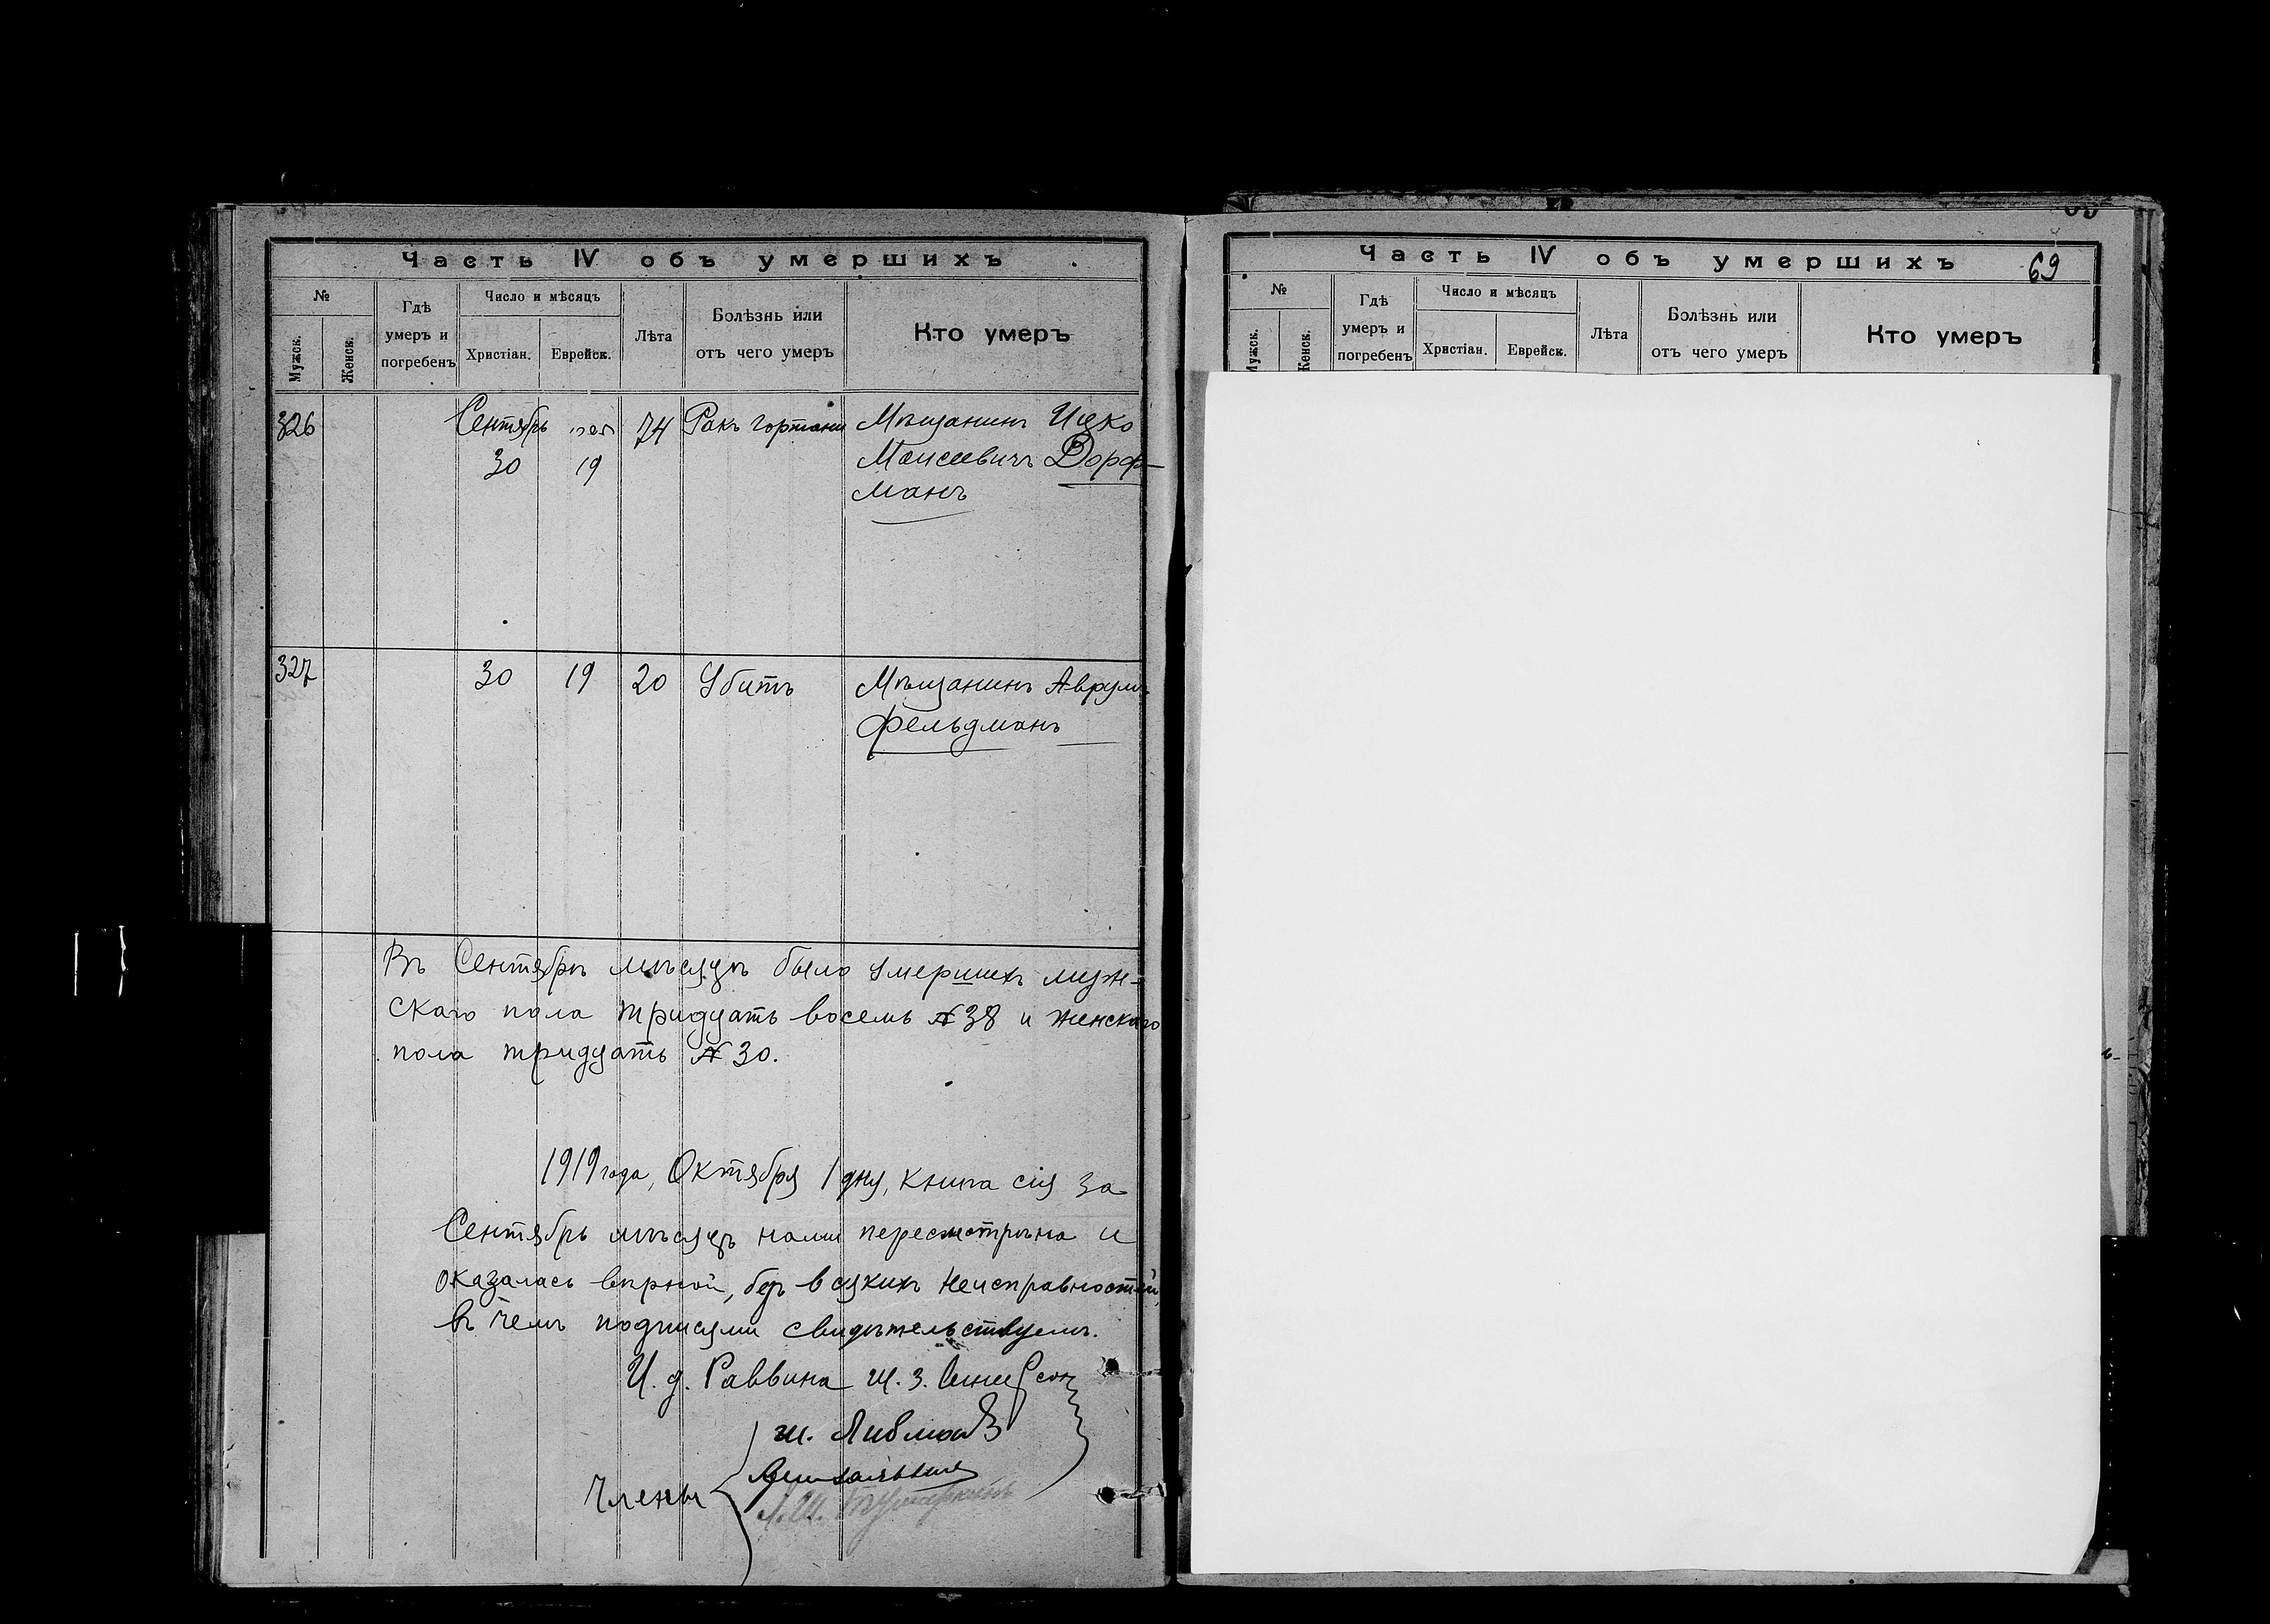 Часть IV объ умершихъ
№
Мужск.
Женск.
Гдѣ
умеръ и
погребенъ
Число и мѣсяцъ
Христіан.
Еврейск.
Лѣта
Болѣзнь или
отъ чего умеръ
Кто умеръ
326
Сентябрь
30
19
74
Ракъ гортани
Мѣщанинъ Ицко
Моисеевичъ Дорф-
манъ
327
30
19
20
Убитъ
Мѣщанинъ Аврумъ
Фельдманъ
Въ Сентябрѣ мѣсяцѣ было умершихъ муж-
скаго пола тридцать восемь № 38 и женскаго
пола тридцать № 30.
1919 года, Октября 1 дня, книга сія за
Сентябрь мѣсяцъ нами пересмотрѣна и
оказалась вѣрной, безъ всякихъ неисправностей,
въ чемъ подписями свидѣтельствуемъ.
И. д. Раввина Ш. З.
Ш.
Члены
Часть IV объ умершихъ
69
№
Мужск.
Женск.
Гдѣ
умеръ и
погребенъ
Число и мѣсяцъ
Христіан.
Еврейск.
Лѣта
Болѣзнь или
отъ чего умеръ
Кто умеръ